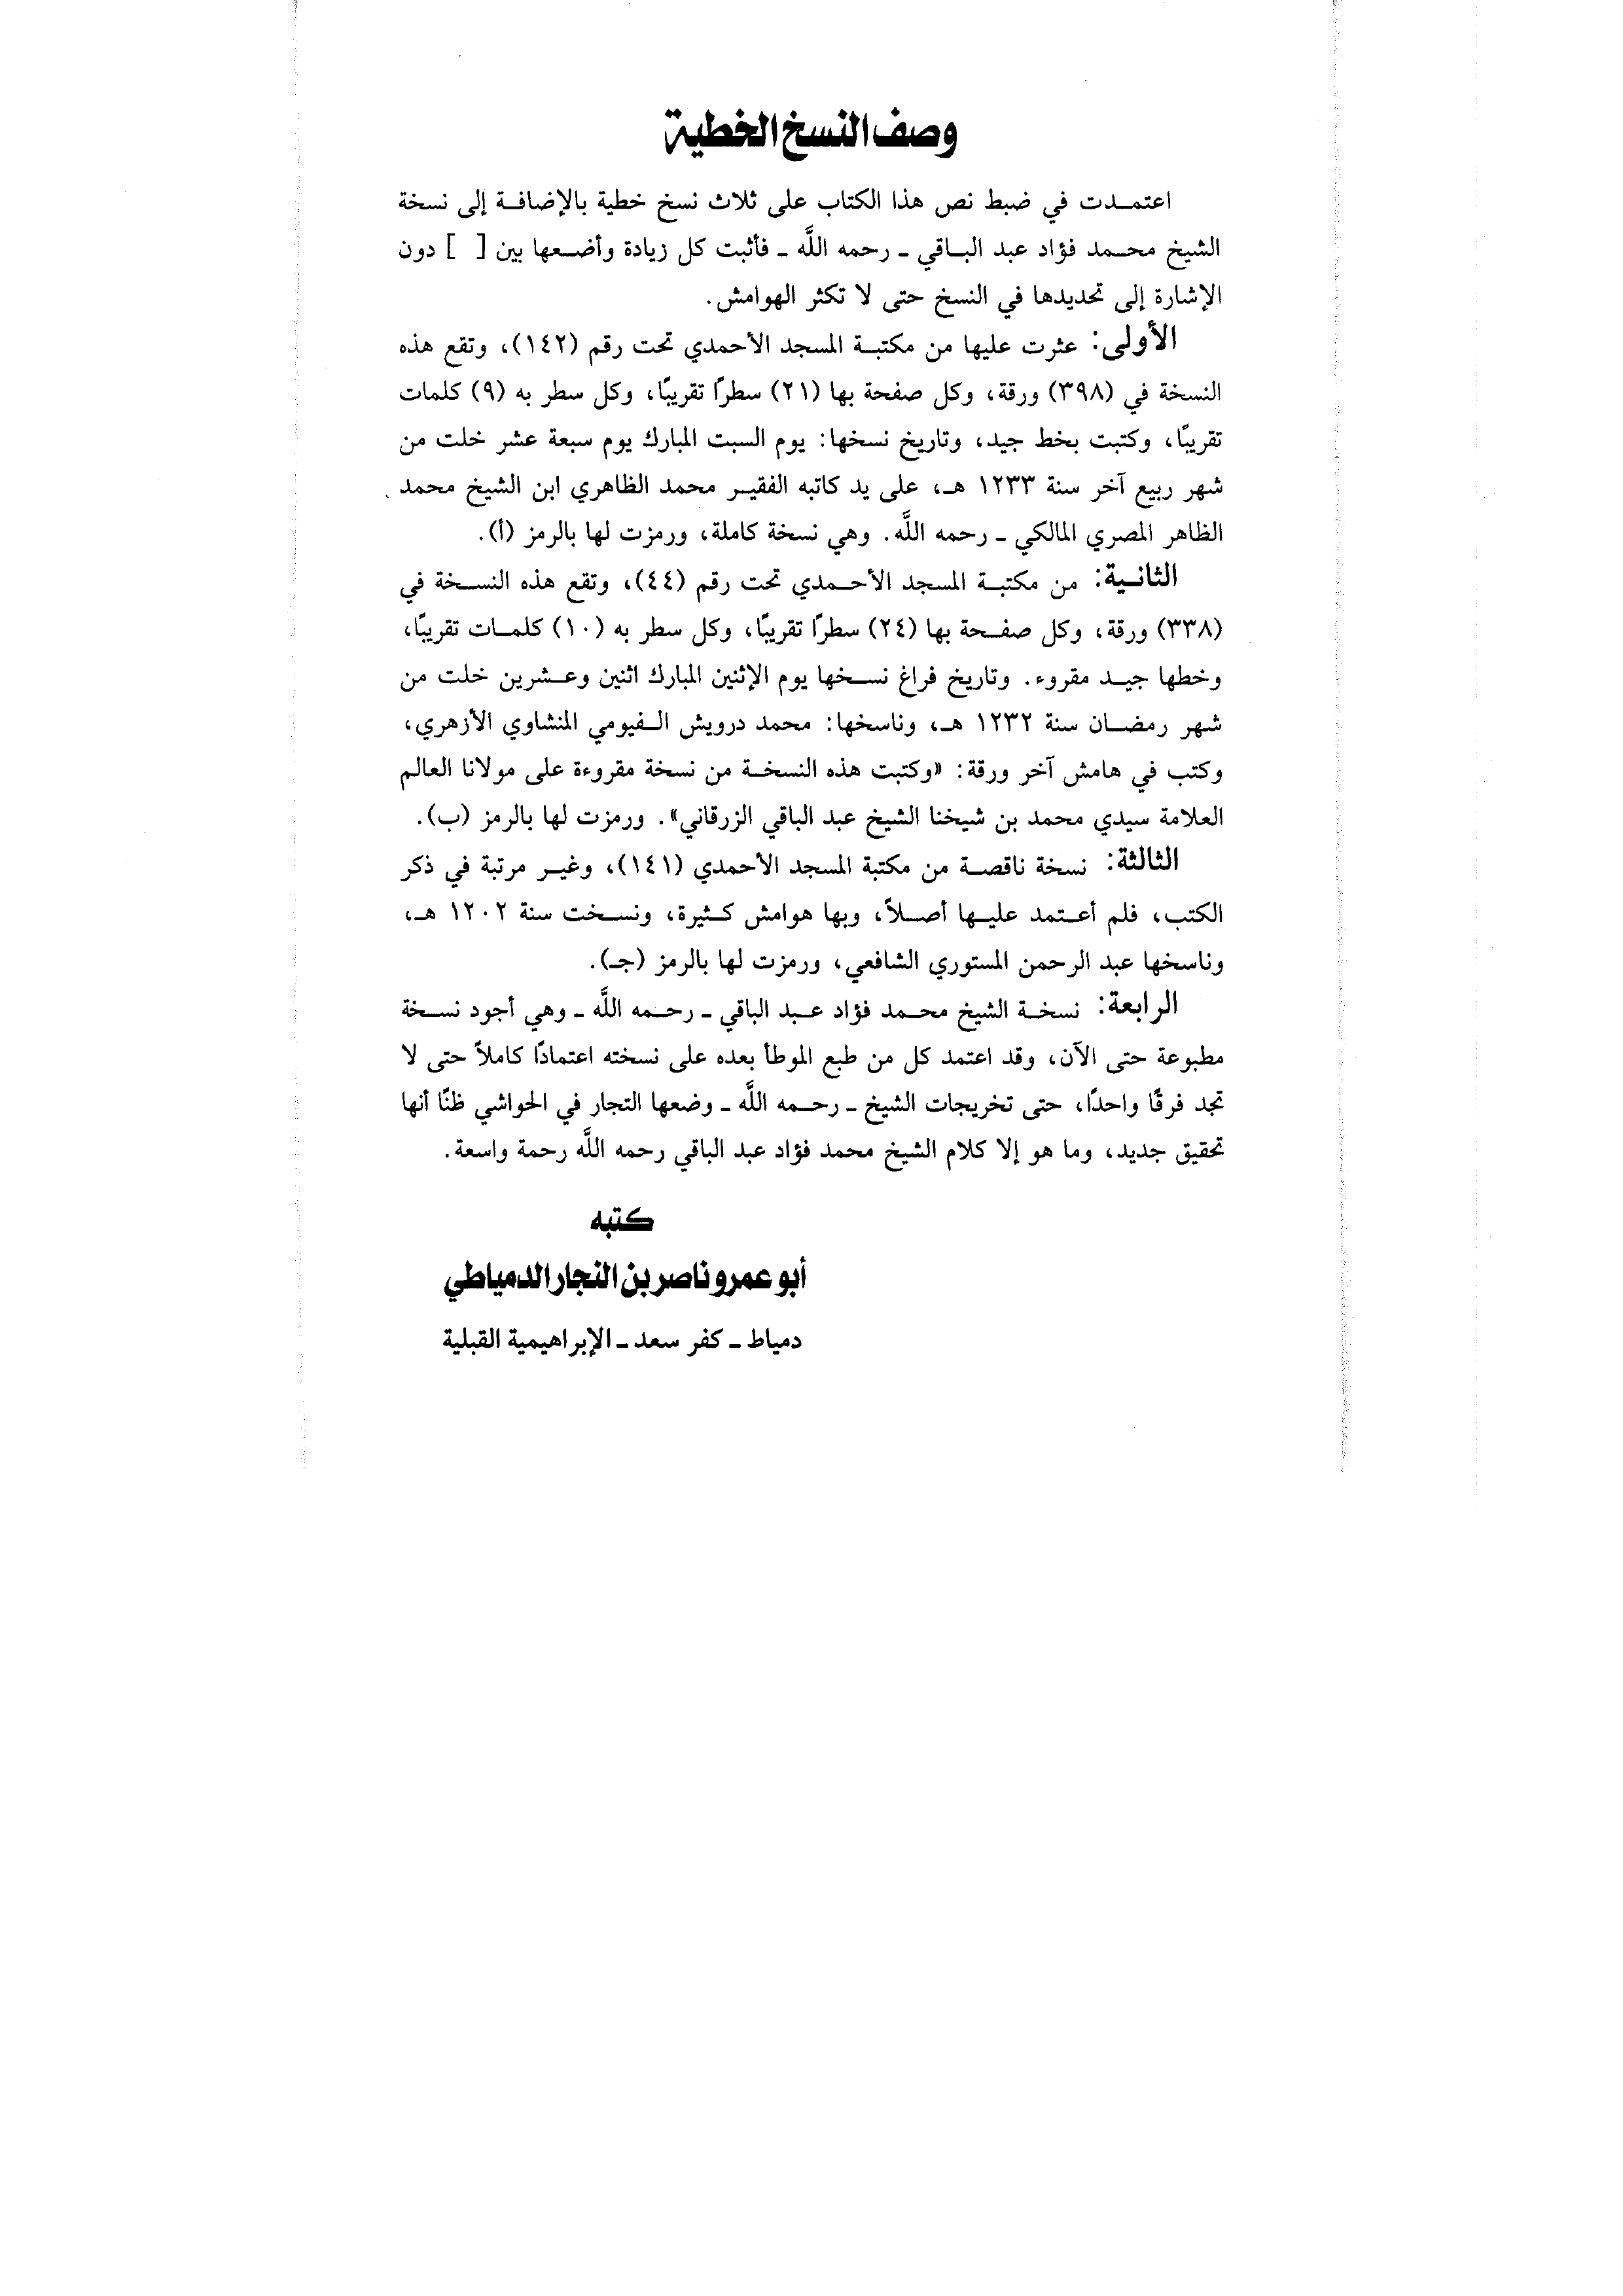 وصف النسخ الخطية
اعتمدت في ضبط نص هذا الكتاب على ثلاث نسخ خطية بالإضافة إلى نسخة
الشيخ محمد فؤاد عبد الباقي ـ رحمه اللَّه ـ فأثبت كل زيادة وأضعها بين [ ] دون
الإشارة إلى تحديدها في النسخ حتى لا تكثر الهوامش.
الأولى: عثرت عليها من مكتبة المسجد الأحمدي تحت رقم (١٤٢)، وتقع هذه
النسخة في (٣٩٨) ورقة، وكل صفحة بها (٢١) سطرًا تقريبًا، وكل سطر به (٩) كلمات
تقريبًا، وكتبت بخط جيد، وتاريخ نسخها: يوم السبت المبارك يوم سبعة عشر خلت من
شهر ربيع آخر سنة ١٢٣٣ هـ، على يد كاتبه الفقير محمد الظاهري ابن الشيخ محمد
الظاهر المصري المالكي ـ رحمه اللَّه. وهي نسخة كاملة، ورمزت لها بالرمز (أ).
الثانية: من مكتبة المسجد الأحمدي تحت رقم (٤٤)، وتقع هذه النسخة في
(٣٣٨) ورقة، وكل صفحة بها (٢٤) سطرًا تقريبًا، وكل سطر به (١٠) كلمات تقريبًا،
وخطها جيد مقروء. وتاريخ فراغ نسخها يوم الإثنين المبارك اثنين وعشرين خلت من
شهر رمضان سنة ١٢٣٢ هـ، وناسخها: محمد درويش الفيومي المنشاوي الأزهري،
وكتب في هامش آخر ورقة: «وكتبت هذه النسخة من نسخة مقروءة على مولانا العالم
العلامة سيدي محمد بن شيخنا الشيخ عبد الباقي الزرقاني». ورمزت لها بالرمز (ب).
الثالثة: نسخة ناقصة من مكتبة المسجد الأحمدي (١٤١)، وغير مرتبة في ذكر
الكتب، فلم أعتمد عليها أصلاً، وبها هوامش كثيرة، ونسخت سنة ١٢٠٢ هـ،
وناسخها عبد الرحمن المستوري الشافعي، ورمزت لها بالرمز (جـ).
الرابعة: نسخة الشيخ محمد فؤاد عبد الباقي ـ رحمه اللَّه ـ وهي أجود نسخة
مطبوعة حتى الآن، وقد اعتمد كل من طبع الموطأ بعده على نسخته اعتمادًا كاملاً حتى لا
تجد فرقًا واحدًا، حتى تخريجات الشيخ ـ رحمه اللَّه ـ وضعها التجار في الحواشي ظنًا أنها
تحقيق جديد، وما هو إلا كلام الشيخ محمد فؤاد عبد الباقي رحمه اللَّه رحمة واسعة.
كتبه
أبو عمرو ناصر بن النجار الدمياطي
دمياط ـ كفر سعد ـ الإبراهيمية القبلية